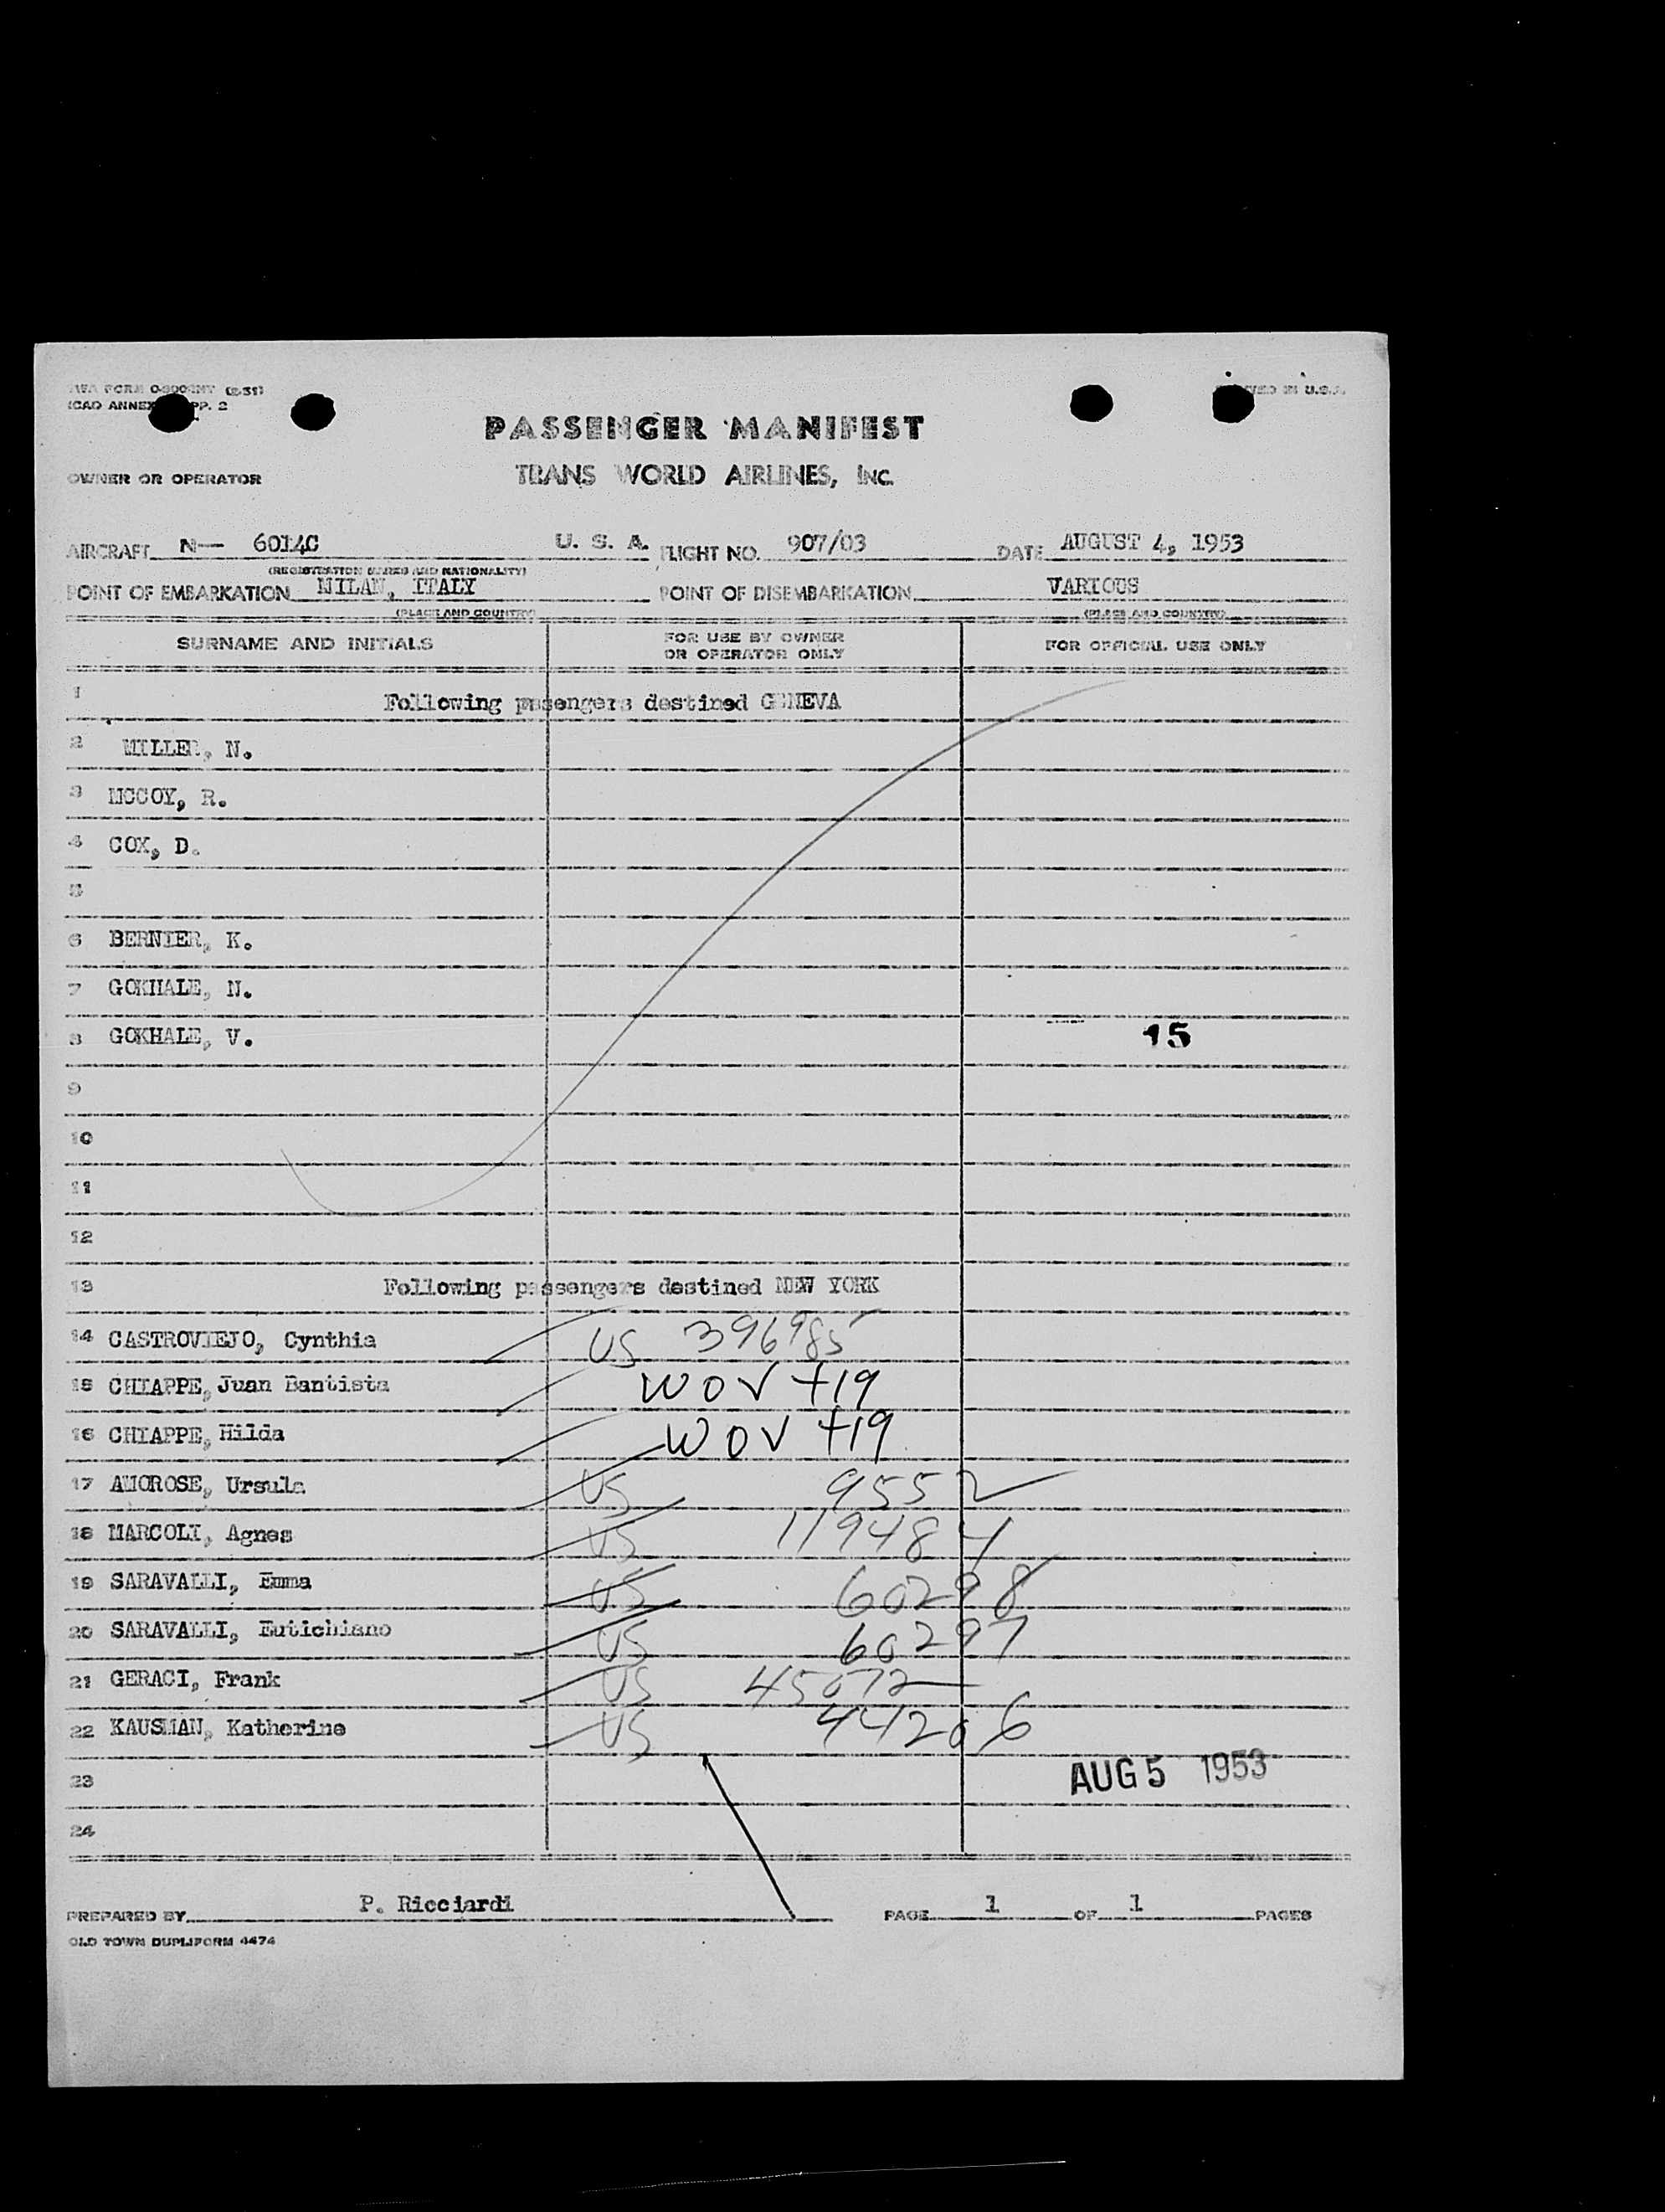 ICAO ANNEX PP. 2
PASSENGER MANIFEST
OWNER OR OPERATOR TRANS WORLD AIRLINES, INC.
AIRCRAFT N— 6014C U. S. A. FLIGHT NO. 907/03 DATE AUGUST 4, 1953
(REGISTRATION MARKS AND NATIONALITY)
POINT OF EMBARKATION MILAN, ITALY POINT OF DISEMBARKATION VARIOUS
(PLACE AND COUNTRY) (PLACE AND COUNTRY)
SURNAME AND INITIALS FOR USE BY OWNER OR OPERATOR ONLY FOR OFFICIAL USE ONLY
1 Following passengers destined GENEVA
2 MILLER, N.
3 MCCOY, R.
4 COX, D.
5
6 BERNIER, K.
7 GOKHALE, N.
8 GOKHALE, V. 15
9
10
11
12
13 Following passengers destined NEW YORK
14 CASTROVIEJO, Cynthia US 396985
15 CHIAPPE, Juan Bautista WOV +19
16 CHIAPPE, Hilda WOV +19
17 AMOROSE, Ursula US 9552
18 MARCOLI, Agnes US 119484
19 SARAVALLI, Emma US 60298
20 SARAVALLI, Eutichiano US 60297
21 GERACI, Frank US 45072
22 KAUSMAN, Katherine US 44206
23 AUG 5 1953
24
PREPARED BY P. Ricciardi PAGE 1 OF 1 PAGES
OLD TOWN DUPLIFORM 4474